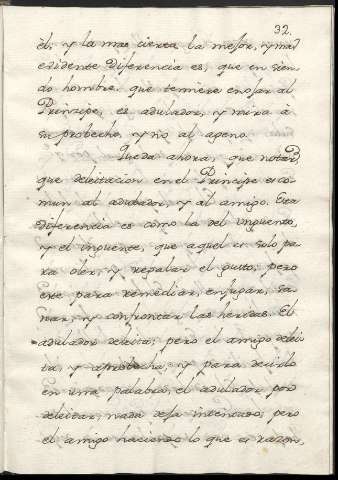 32.
èl, y la mas cierta, la mejor, y mas
evidente diferencia es, que en sien-
do hombre que temiere enojar al
Principe, es adulador, y mira à
su probecho, y no al ageno.
Queda ahora, que notar,
que deleitacion en el Principe es co-
mun al adulador, y al amigo. Esta
diferencia es como la del unguento,
y el inguente, que aquel es solo pa-
ra oler, y regalar el gusto, pero
este para remediar, enjugar, sa-
nar, y confrontar las heridas. El
adulador deleita, pero el amigo delei-
ta, y aprobecha, y para decirlo
en una palabra, el adulador por
deleitar, nada deja intentado; pero
el amigo haciendo lo que es razon,